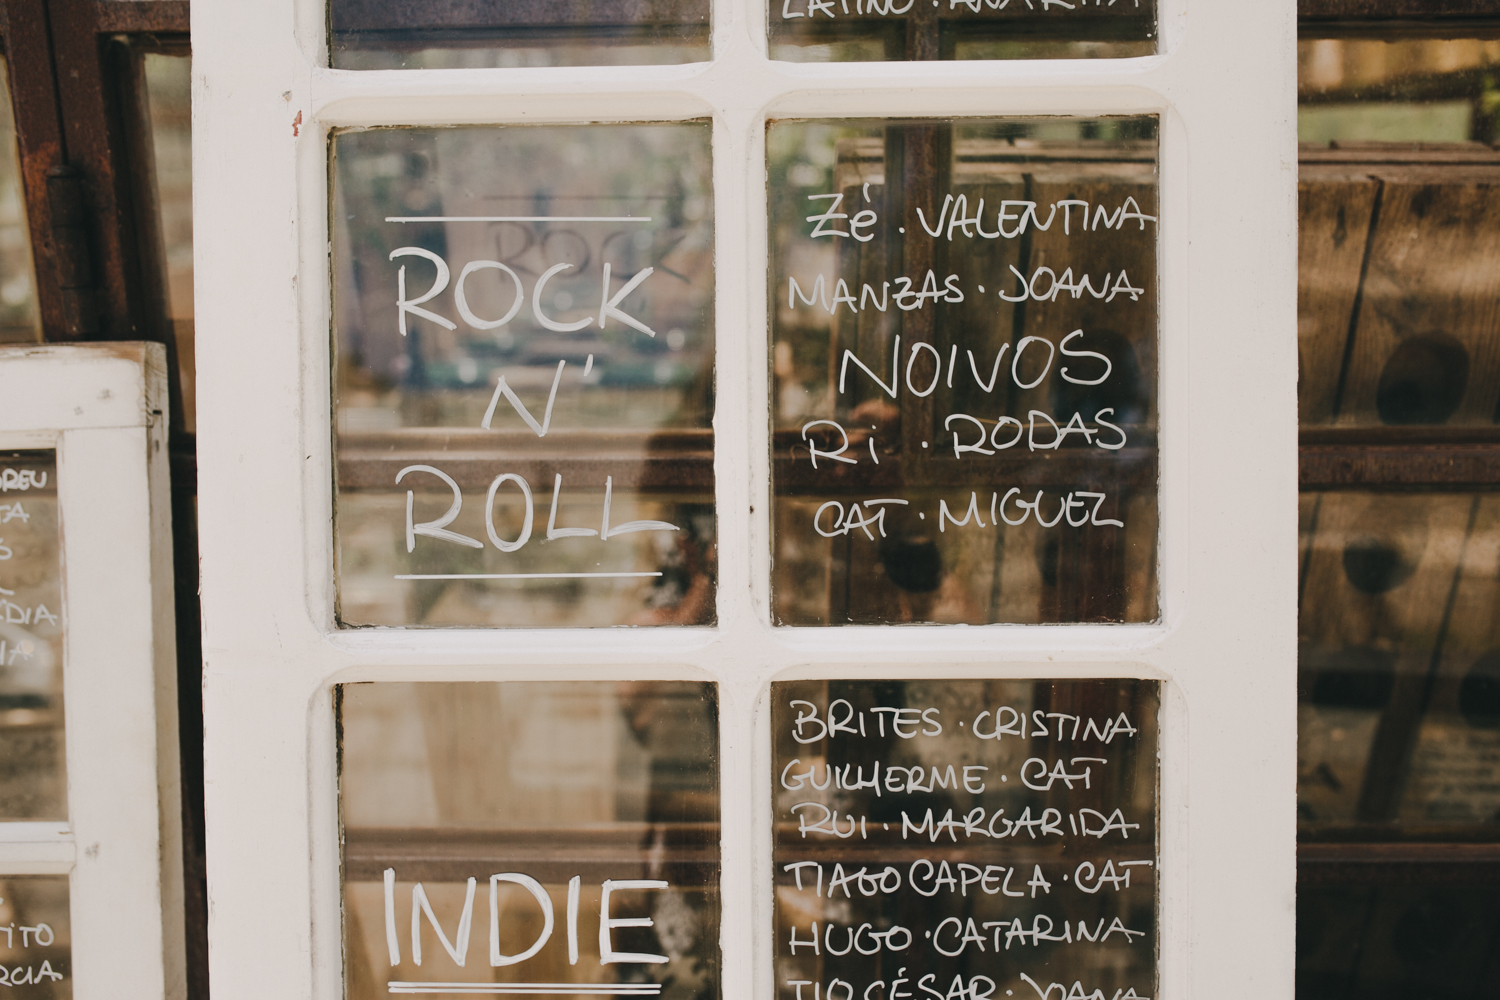 LATINO · ANA RITA
ROCK
N'
ROLL
Zé · VALENTINA
MANZAS · JOANA
NOIVOS
Ri · RODAS
CAT · MIGUEL
INDIE
BRITES · CRISTINA
GUILHERME · CAT
RUI · MARGARIDA
TIAGO CAPELA · CAT
HUGO · CATARINA
TIO CÉSAR · JOANA
REU
TA
S
DIA
IA
TITO
RCIA